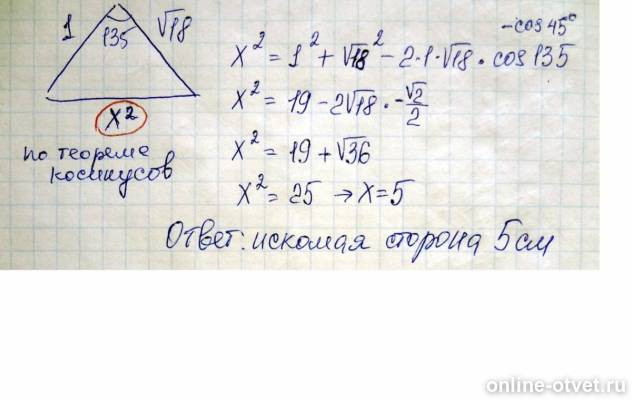 1
135
√18
X²
по теореме
косинусов
-cos 45°
X² = 1² + √18² - 2·1·√18 · cos 135
X² = 19 - 2√18 · -√2/2
X² = 19 + √36
X² = 25 → X = 5
Ответ: искомая сторона 5 см
online-otvet.ru